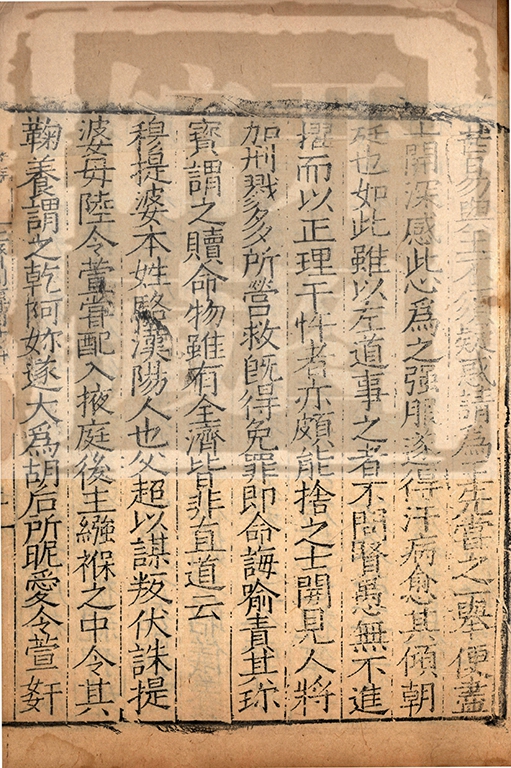 昔易與王不須疑惑請爲王先嘗之一舉便盡
士開深感此心爲之强服遂得汗病愈其傾朝
廷也如此雖以左道事之者不問賢愚無不進
擢而以正理干忤者亦頗能捨之士開見人將
加刑戮多所營救旣得免罪即命諷喻責其珎
寳謂之贖命物雖有全濟皆非直道云
穆提婆本姓駱漢陽人也父超以謀叛伏誅提
婆母陸令萱甞配入掖庭後主繈褓之中令其
鞠養謂之乾阿妳遂大爲胡后所昵愛令萱姧